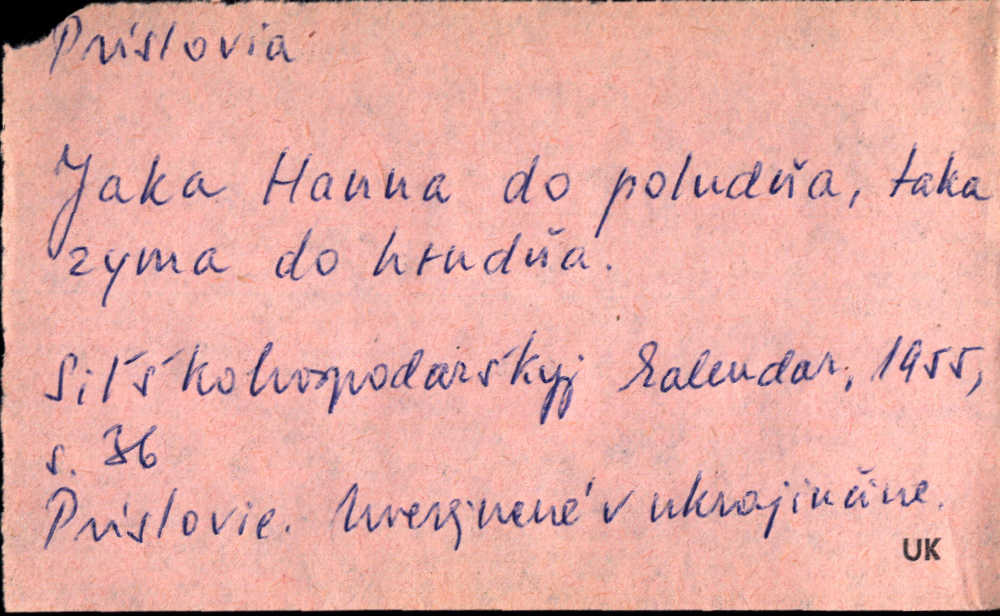 Príslovia
Jaka Hanna do poludňa, taka
zyma do hrudňa.
Siľśkohospodarśkyj kalendar, 1955,
s. 36
Príslovie. Uverejnené v ukrajinčine.
UK